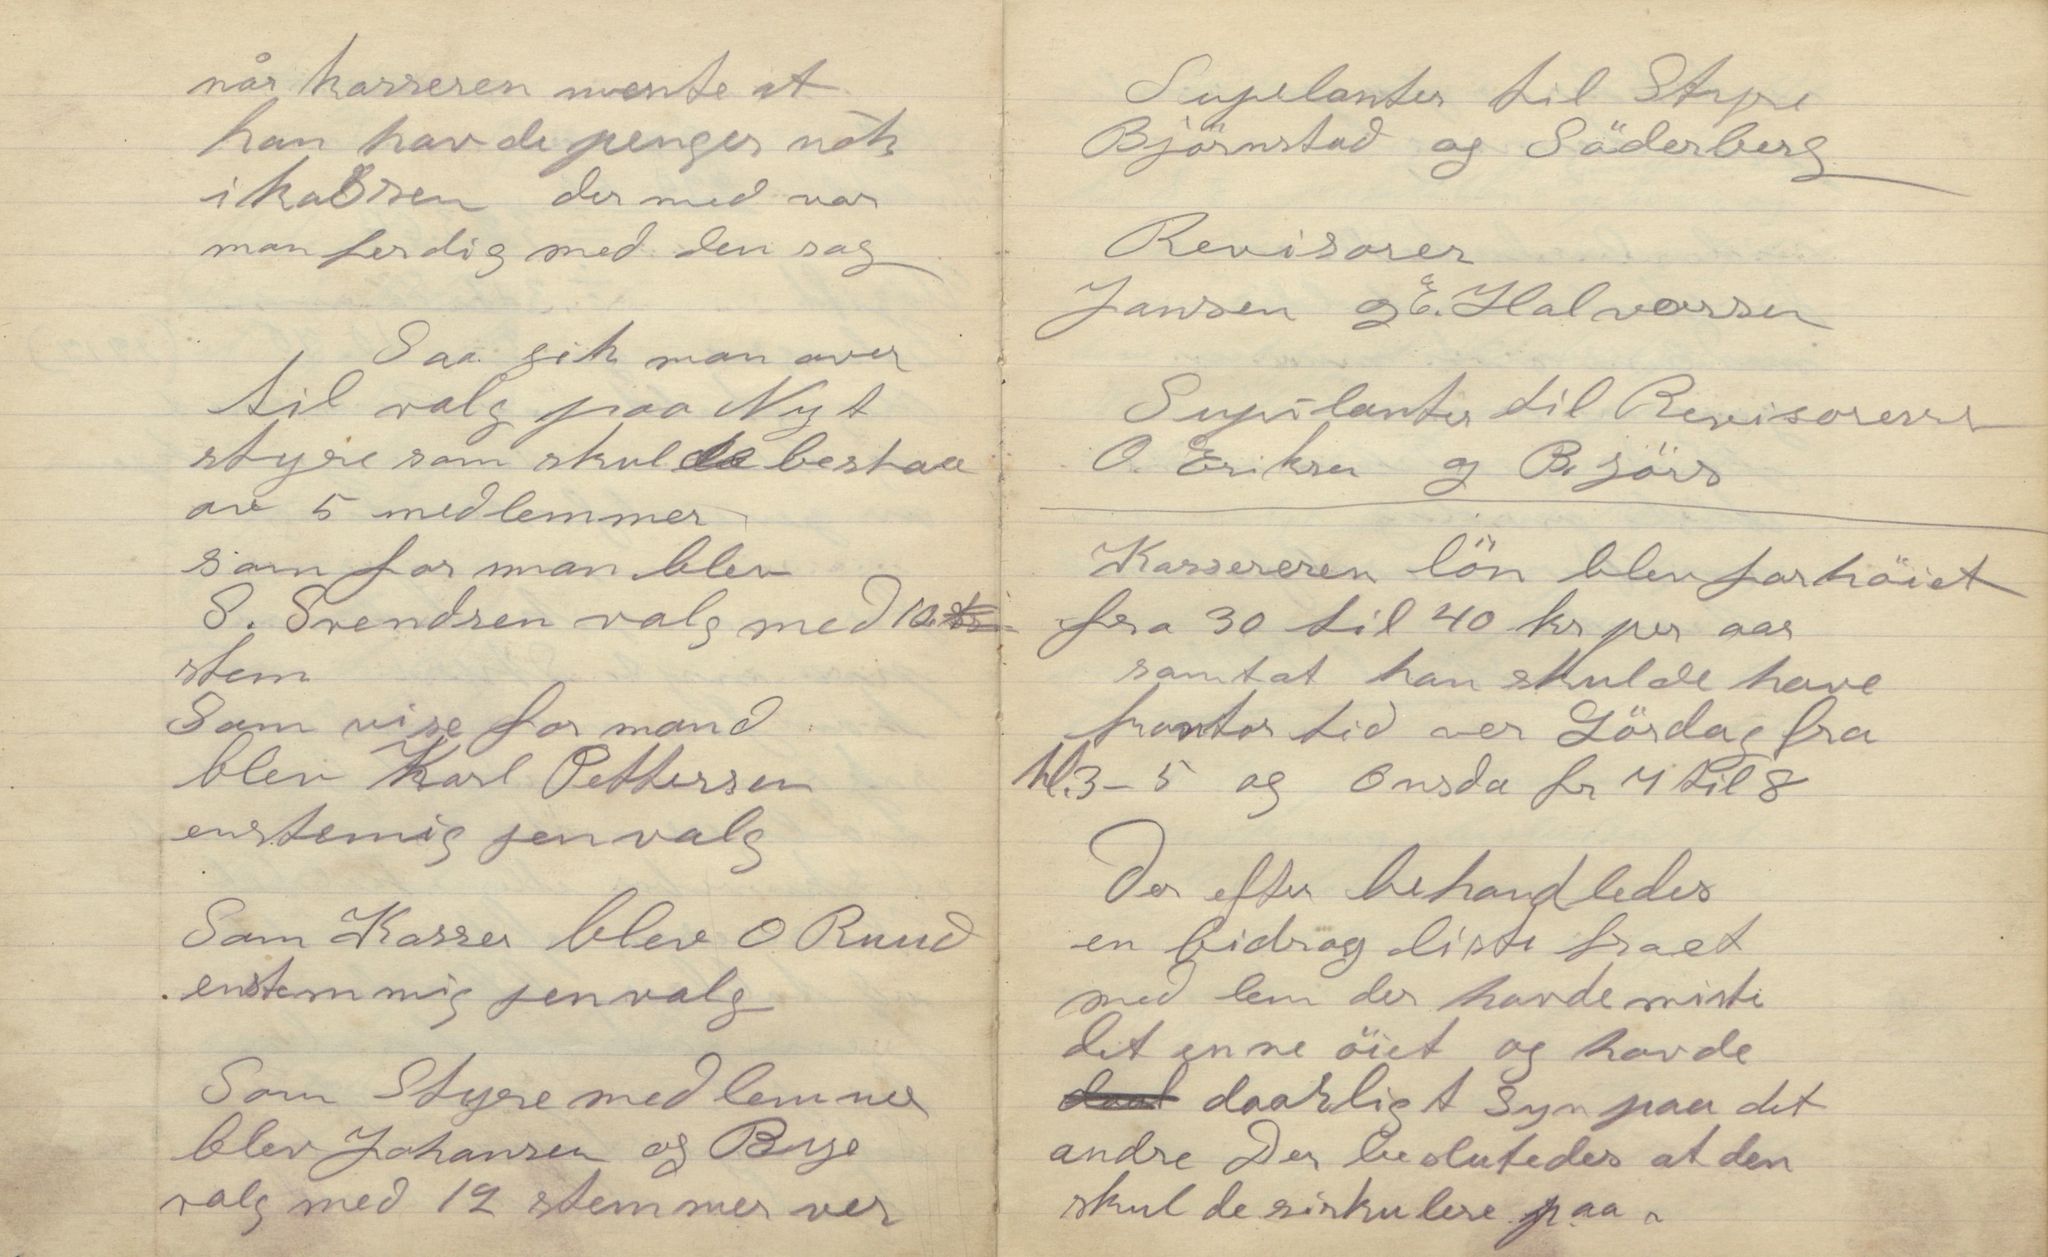 når kasseren mente at
han havde penger nok
i kassen der med var
man ferdig med den sag
Saa gik man over
til valg paa Nyt
styre som skulde bestaa
av 5 medlemmer
som for man blev
S. Svendsen valg med 10
stem
Som vise for mand
blev Karl Pettersen
enstemig jenvalg
Som Kasser blev O Ruud
enstemmig jenvalg
Som Styre medlemmer
blev Johansen og Bye
valg med 12 stemmer ver
Supelanter til Styre
Björnstad og Söderberg
Revisorer
Jansen og E. Halvorsen
Supilanter til Revisorerne
O. Eriksen og Björs
Kassereren lön blev forhöiet
fra 30 til 40 kr per aar
samt at han skulde have
kontor tid ver Lördag fra
kl. 3-5 og Onsda fr 7 til 8
Der efter behandledes
en bidrag liste fra et
med lem der havde miste
det enne öiet og havde
daarligt Syn paa det
andre Der beslutedes at den
skulde sirkulere paa